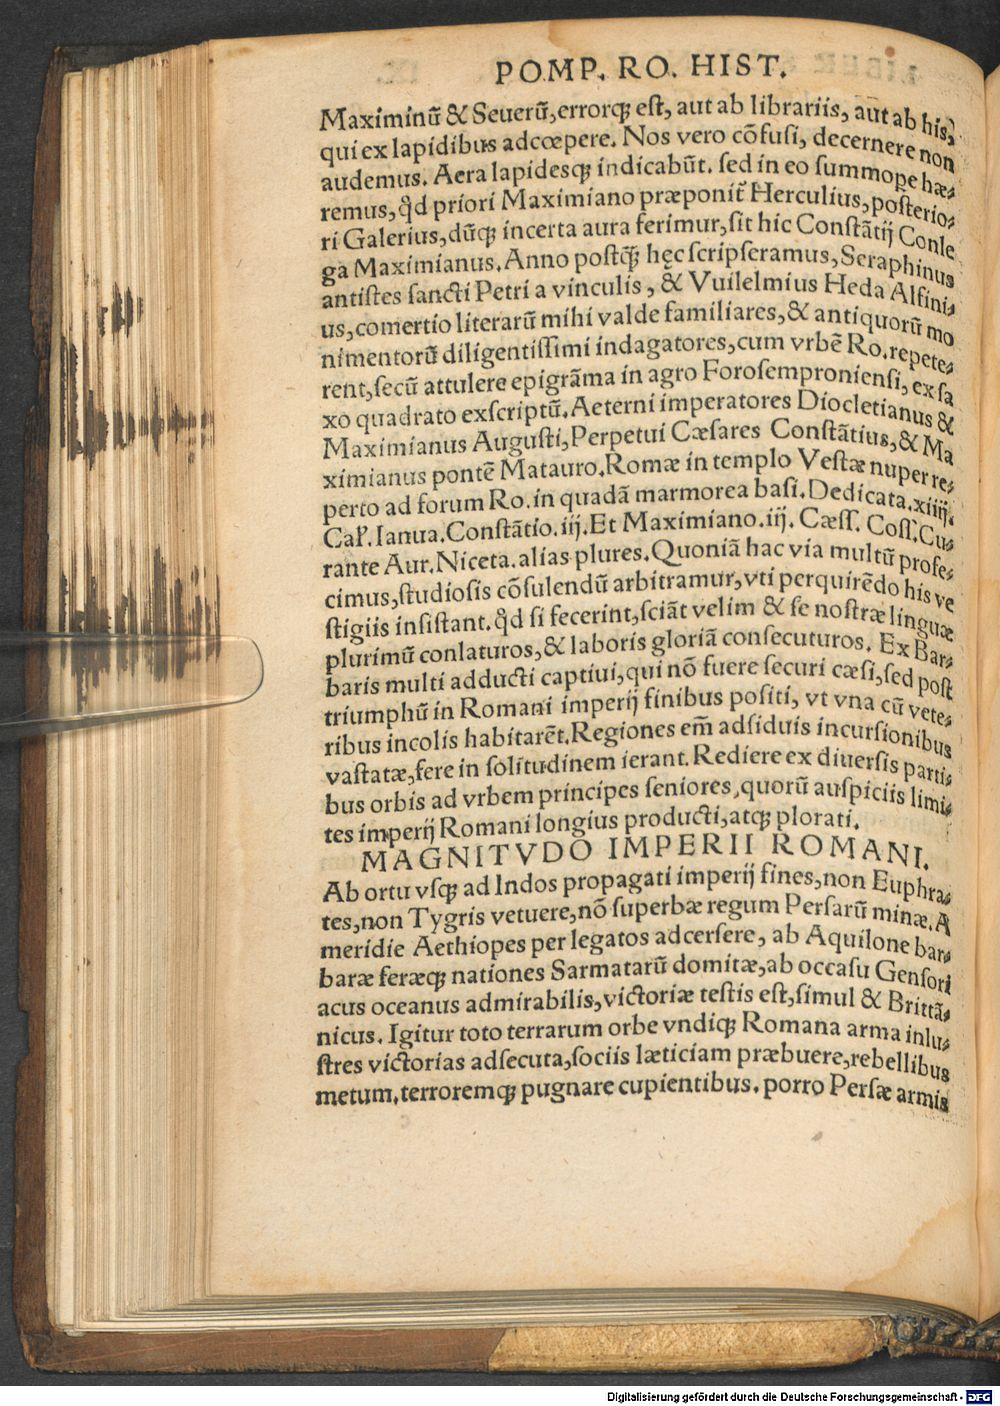 POMP. RO. HIST.
Maximinū & Seuerū, errorq; est, aut ab librariis, aut ab his,
qui ex lapidibus adcœpere. Nos vero cōfusi, decernere non
audemus. Aera lapidesq; indicabūt. sed in eo summope hæ⸗
remus, qd priori Maximiano præponit̃ Herculius, posterio⸗
ri Galerius, dūq; incerta aura ferimur, sit hic Constātij Conle
ga Maximianus. Anno postq̃ hęc scripseramus, Seraphinus
antistes sancti Petri a vinculis, & Vuilelmius Heda Alfini⸗
us, comertio literarū mihi valde familiares, & antiquorū mo
nimentorū diligentissimi indagatores, cum vrbē Ro. repete⸗
rent, secū attulere epigrāma in agro Forosemproniensi, ex sa
xo quadrato exscriptū. Aeterni imperatores Diocletianus &
Maximianus Augusti, Perpetui Cæsares Constātius, & Ma
ximianus pontē Matauro. Romæ in templo Vestæ nuper re⸗
perto ad forum Ro. in quadā marmorea basi. Dedicata. xiiij.
Cal̕. Ianua. Constātio. iij. Et Maximiano. iij. Cæss. Coss. Cu⸗
rante Aur. Niceta. alias plures. Quoniā hac via multū profe⸗
cimus, studiosis cōsulendū arbitramur, vti perquirēdo his ve
stigiis insistant. qd si fecerint, sciāt velim & se nostræ linguæ
plurimū conlaturos, & laboris gloriā consecuturos. Ex Bar⸗
baris multi adducti captiui, qui nō fuere securi cæsi, sed post
triumphū in Romani imperij finibus positi, vt vna cū vete⸗
ribus incolis habitarēt. Regiones em̄ adsiduis incursionibus
vastatæ, fere in solitudinem ierant. Rediere ex diuersis parti⸗
bus orbis ad vrbem principes seniores, quorū auspiciis limi⸗
tes imperij Romani longius producti, atq; plorati.
MAGNITVDO IMPERII ROMANI.
Ab ortu vsq; ad Indos propagati imperij fines, non Euphra⸗
tes, non Tygris vetuere, nō superbæ regum Persarū minæ. A
meridie Aethiopes per legatos adcersere, ab Aquilone bar⸗
baræ feræq; nationes Sarmatarū domitæ, ab occasu Gensori
acus oceanus admirabilis, victoriæ testis est, simul & Brittā⸗
nicus. Igitur toto terrarum orbe vndiq; Romana arma inlu⸗
stres victorias adsecuta, sociis læticiam præbuere, rebellibus
metum, terroremq; pugnare cupientibus. porro Persæ armis
Digitalisierung gefördert durch die Deutsche Forschungsgemeinschaft - DFG